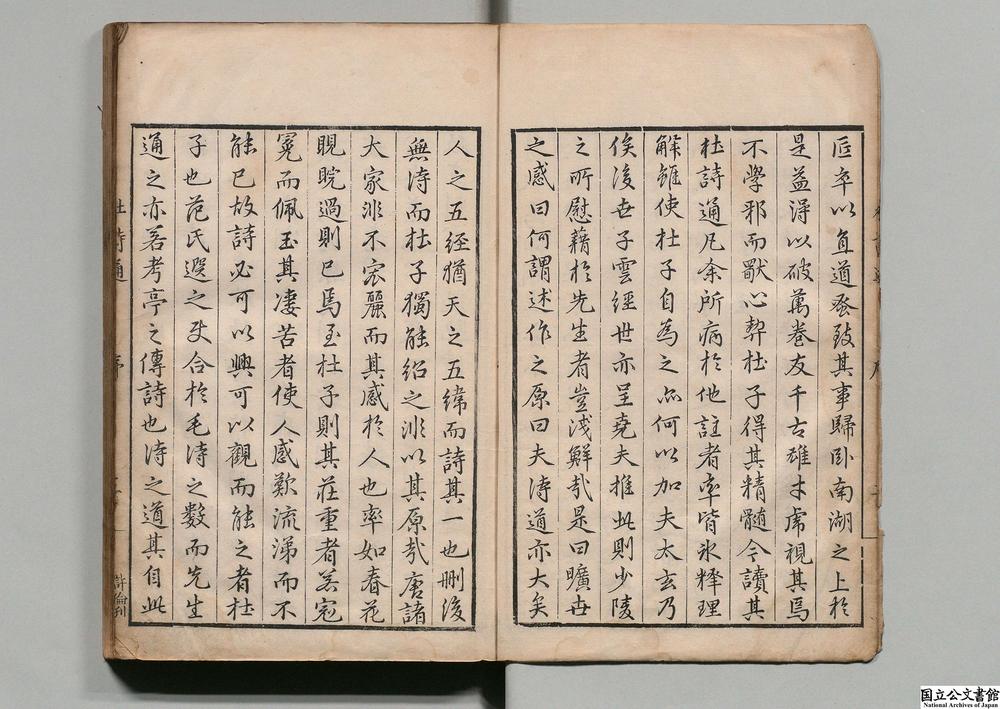 叵卒以直道發致其事歸卧南湖之上於
是益得以破萬卷友千古雄才虎視其焉
不學邪而獸心契杜子得其精髓今讀其
杜詩通凡余所病於他註者率皆氷釋理
解雖使杜子自為之亦何以加夫太玄乃
俟後世子雲經世亦呈堯夫推此則少陵
之所慰藉於先生者豈浅鮮哉是曰曠世
之感曰何謂述作之原曰夫詩道亦大矣
人之五経猶天之五緯而詩其一也刪後
無詩而杜子獨能紹之非以其原哉唐諸
大家非不宏麗而其感於人也率如春花
睍睆過則已焉至杜子則其莊重者若冠
冕而佩玉其凄苦者使人感歎流涕而不
能已故詩必可以興可以觀而能之者杜
子也范氏選之又合於毛詩之數而先生
通之亦若考亭之傳詩也詩之道其自此
杜詩通
序
国立公文書館
National Archives of Japan